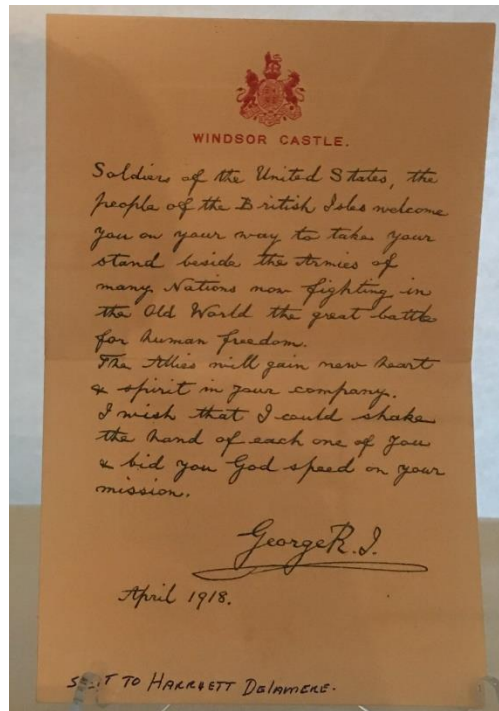 WINDSOR CASTLE.
Soldiers of the United States, the
people of the British Isles welcome
you on your way to take your
stand beside the Armies of
many Nations now fighting in
the Old World the great battle
for human freedom.
The Allies will gain new heart
& spirit in your company.
I wish that I could shake
the hand of each one of you
& bid you God speed on your
mission.
George R.I.
April 1918.
SENT TO HARRIETT DELAMERE.